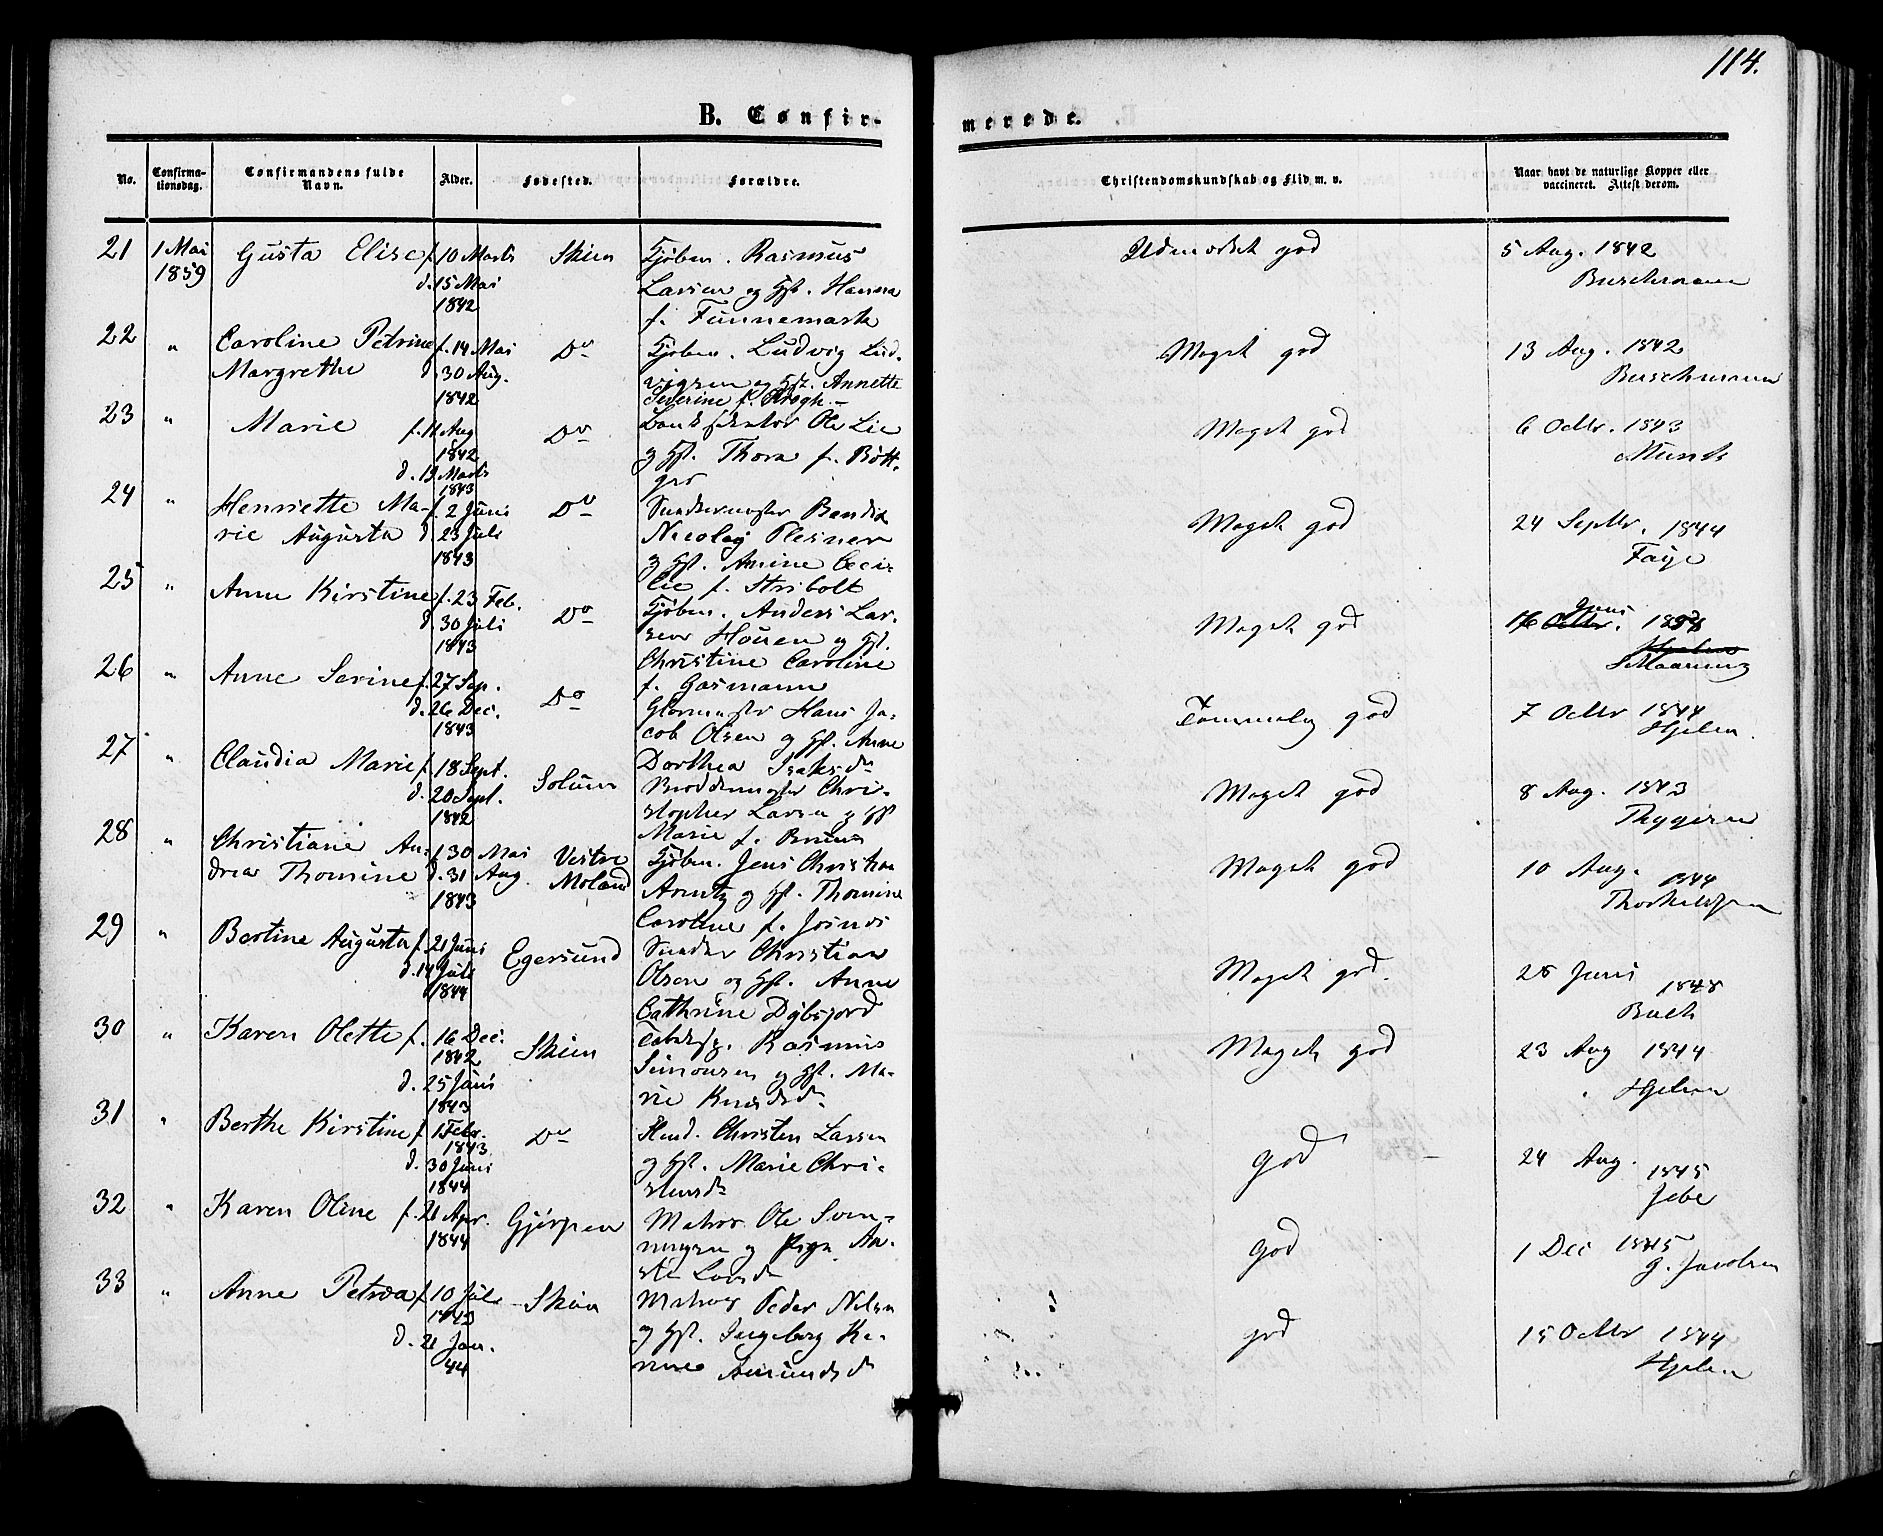 114.
B. Confir-
merede.
No.
Confirma-
tionsdag.
Confirmandens fulde
Navn.
Alder.
Fødested.
Forældre.
Christendomskundskab og Flid m. v.
Naar havt de naturlige Kopper eller
vaccineret. Attest derom.
21 1 Mai Gusta Elise f. 10 Marts Skien Kjøbm. Rasmus Udmærket god 5 Aug. 1842
1859 d. 15 Mai Larsen og Hst. Hanna Buschmann
1842 f. Funnemark
22 " Caroline Petrine f. 14 Mai Do Kjøbm. Ludvig Lud- Meget god 13 Aug. 1842
Margrethe d. 30 Aug. vigsen og Hst. Annette Buschmann
1842 Severine f. Krogh.
23 " Marie f. 11 Aug Do Ole Lie Meget god 6 Octbr. 1843
1842 og Hst. Thora f. Bøtt- Munk
d. 13 Marts ger
1843
24 " Henriette Ma- f. 2 Juni Do Bendix Meget god 24 Septbr. 1844
rie Augusta d. 23 Juli Nicolay Plesner Faye
1843 og Hst. Amine Ceci-
lie f. Stribolt
25 " Anne Kirstine f. 23 Feb. Do Kjøbm. Anders Lar- Meget god 16 Juni
d. 30 Juli sen Houen og Hst.
1843 Christine Caroline
f. Gasmann
26 " Anne Serine f. 27 Sep. Do Glarmester Hans Ja- Temmelig god 7 Octbr 1844
d. 26 Dec. cob Olsen og Hst. Anne Hjelm
1843 Dorthea Isaksdr
27 " Claudia Marie f. 18 Sept. Solum Chri- Meget god 8 Aug. 1843
d. 20 Sept. stopher Larsen og Hst Thygesen
1842 Marie f. Bruun
28 " Christiane An- f. 30 Mai Vestre Kjøbm. Jens Christian Meget god 10 Aug. 1844
drea Thomine d. 31 Aug. Moland Arntz og Hst. Thomine Thorkildsen
1843 Caroline f.
29 " Bertine Augusta f. 21 Juni Egersund Snedker Christian Meget god. 28 Juni 1848
d. 14 Juli Olsen og Hst. Anne Buch
1844 Cathrine Dybsjord
30 " Karen Olette f. 16 Dec. Skien Rasmus Meget god 23 Aug 1844
1842 Simonsen og Hst. Ma- Hjelm
d. 25 Juni rie Knudsdr
1843
31 " Berthe Kirstine f. 1 Febr. Do Christen Larsen god 24 Aug. 1845
1843 og Hst. Marie Chri- Jebe
d. 30 Juni stensdr
1844
32 " Karen Oline f. 21 Apr. Gjerpen Matros Ole Sven- god 1 Dec 1845
1844 ningsen og Pige An- G. Jacobsen
Larsdr
33 " Anne Petrea f. 10 Juli Skien Matros Peder Nilsen god 15 Octbr 1844
1843 og Hst. Ingeborg Ka- Hjelm
d. 21 Jan. rine Amundsd
44